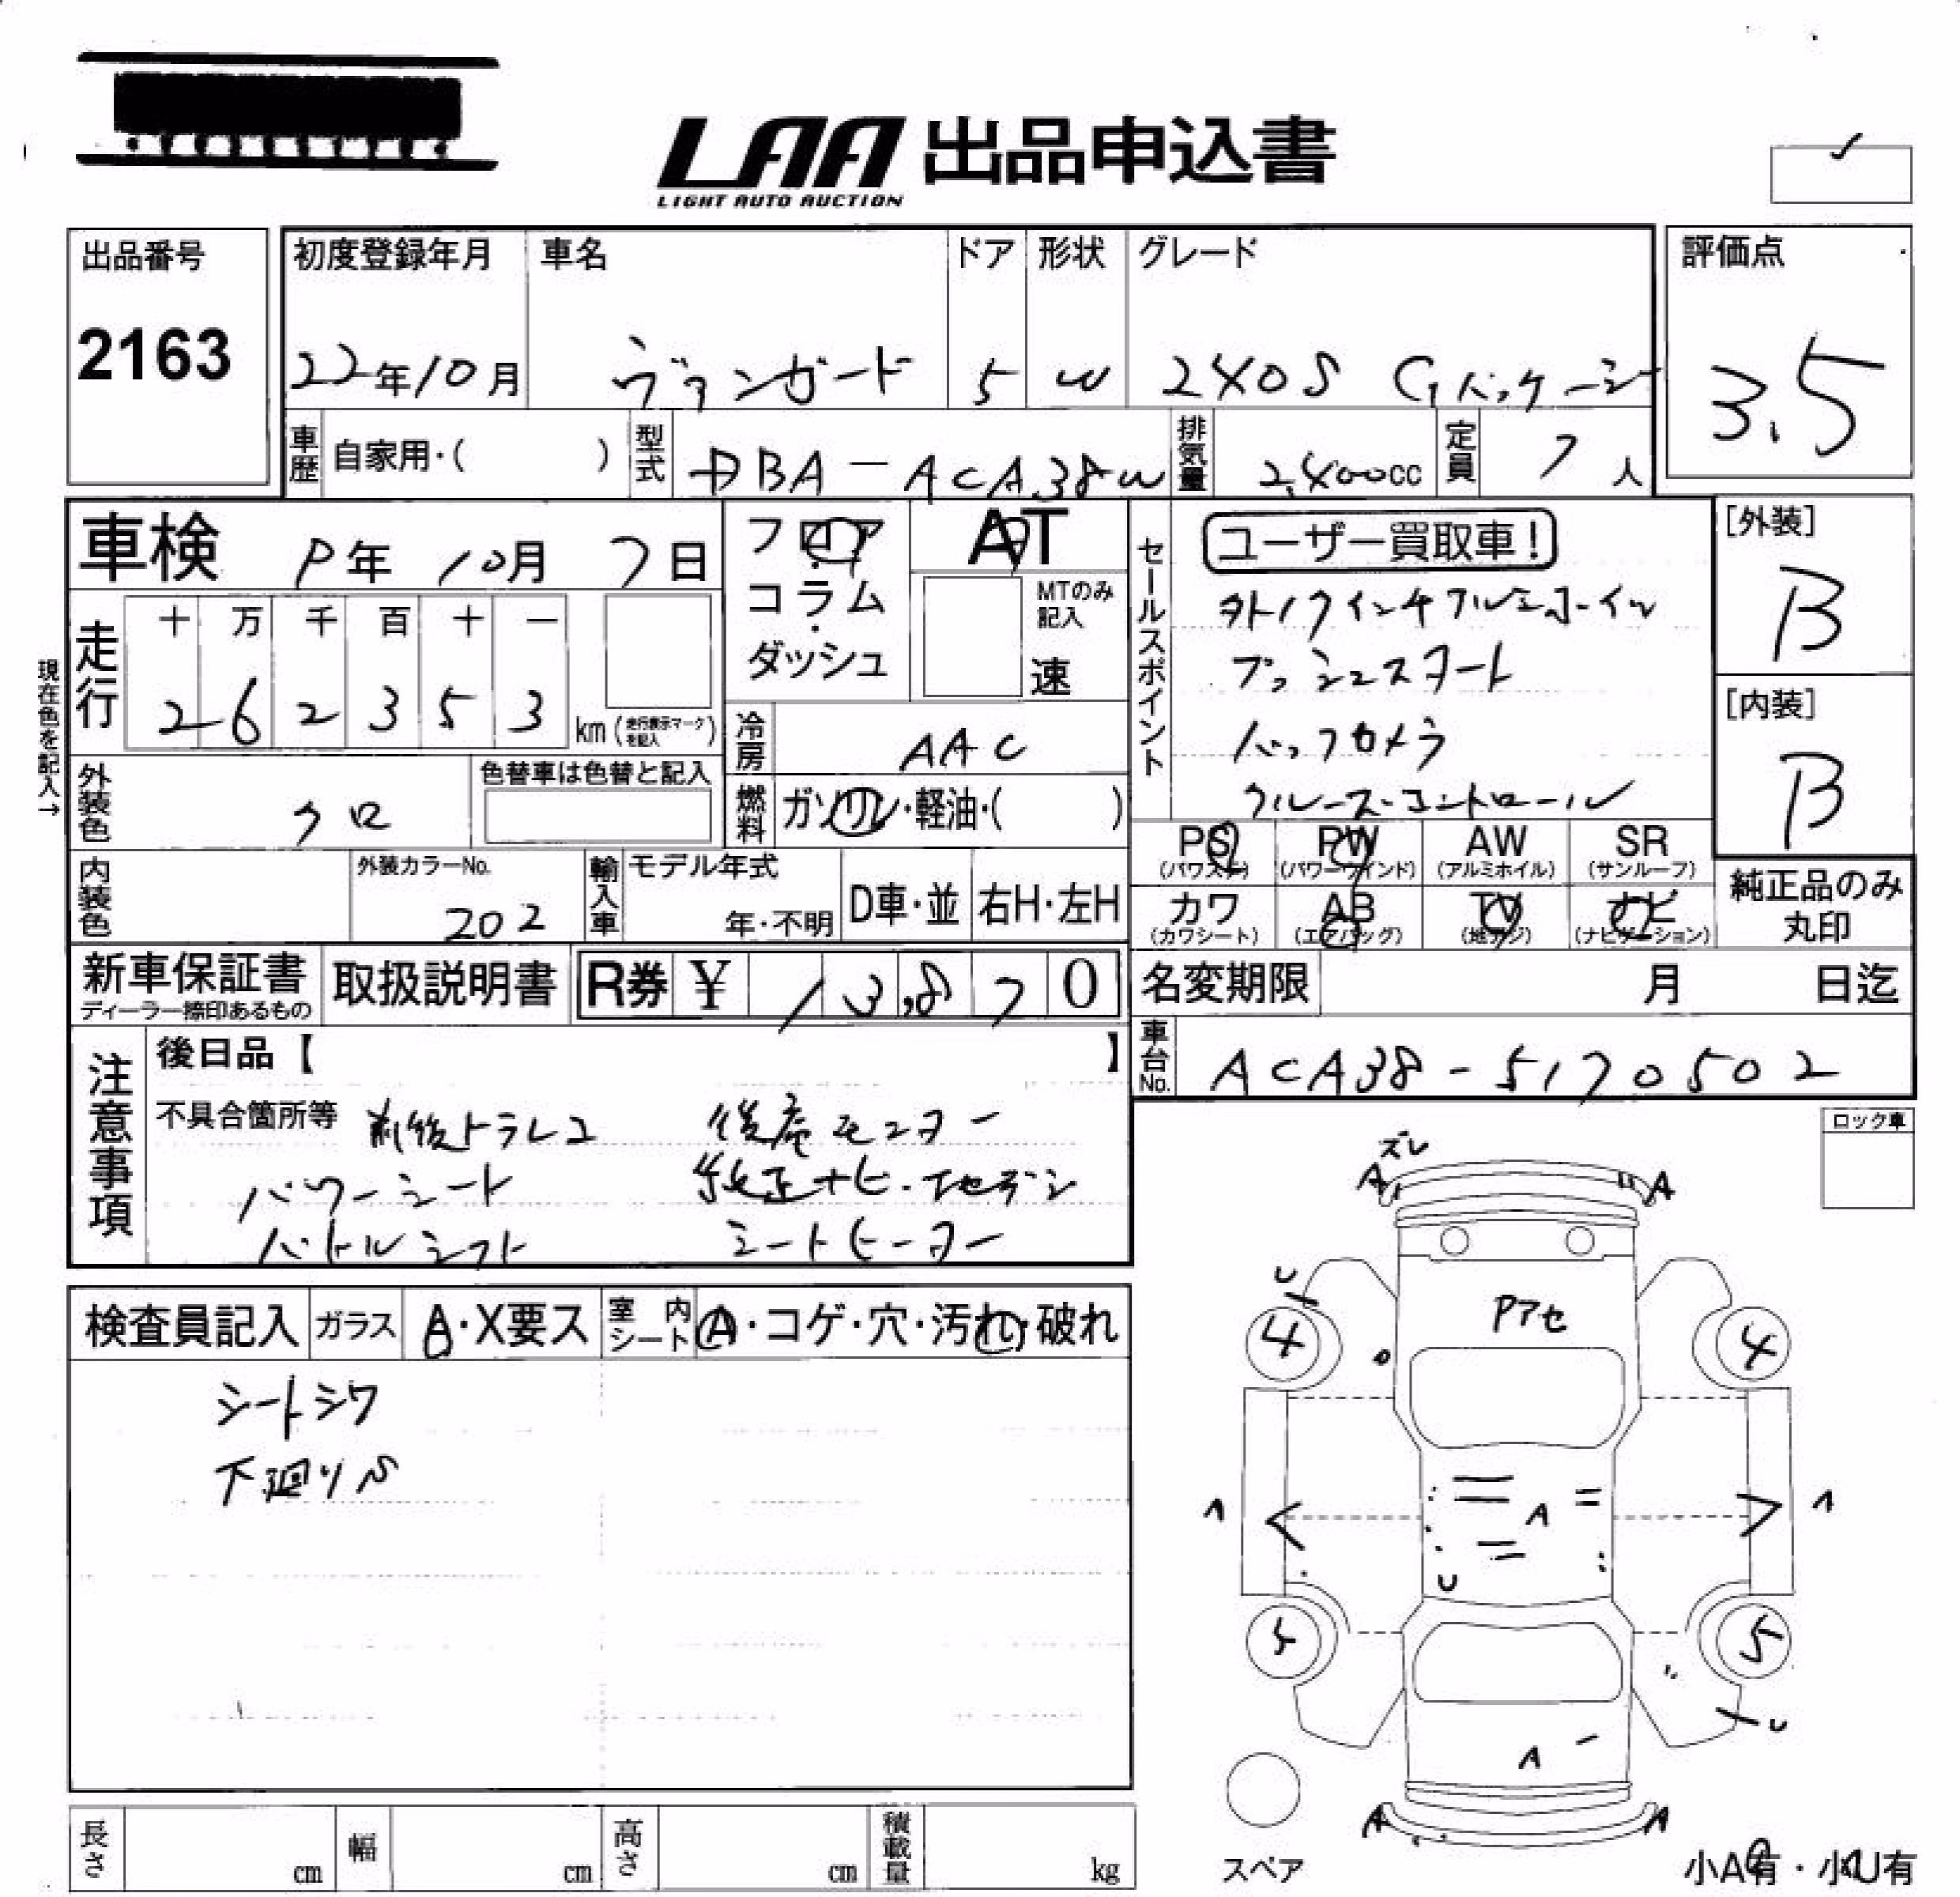 LAA 出品申込書
LIGHT AUTO AUCTION
出品番号
2163
初度登録年月
22年10月
車名
ヴァンガード
ドア
5
形状
W
グレード
240S Gパッケージ
評価点
3.5
車歴
自家用・( )
型式
DBA-ACA38W
排気量
2,400cc
定員
7人
車検
年 10月 7日
走行
十 万 千 百 十 一
2 6 2 3 5 3
km (走行表示マークを記入)
現在色を記入→
フロア
・
コラム
・
ダッシュ
AT
MTのみ記入
速
冷房
AAC
燃料
ガソリン・軽油・( )
外装色
クロ
色替車は色替と記入
内装色
外装カラーNo.
202
輸入車
モデル年式
年・不明
D車・並
右H・左H
セールスポイント
ユーザー買取車!
外17インチアルミホイル
プッシュスタート
バックカメラ
クルーズコントロール
[外装]
B
[内装]
B
PS
(パワステ)
PW
(パワーウインド)
AW
(アルミホイル)
SR
(サンルーフ)
カワ
(カワシート)
AB
(エアバッグ)
TV
(地デジ)
ナビ
(ナビゲーション)
純正品のみ
丸印
新車保証書
ディーラー捺印あるもの
取扱説明書
R券 ¥ 13,870
名変期限 月 日迄
車台No.
ACA38-5170502
注意事項
後日品【 】
不具合箇所等
前後ドラレコ 後席モニター
パワーシート 純正ナビ・地デジ
パドルシフト シートヒーター
検査員記入
ガラス
A・X要ス
室内シート
A・コゲ・穴・汚れ・破れ
シートシワ
下廻りS
ロック車
ズレ
A A
U
Pアセ
4 4
A
U
5 5
U
A
A A
スペア
小A有・小U有
長さ cm
幅 cm
高さ cm
積載量 kg